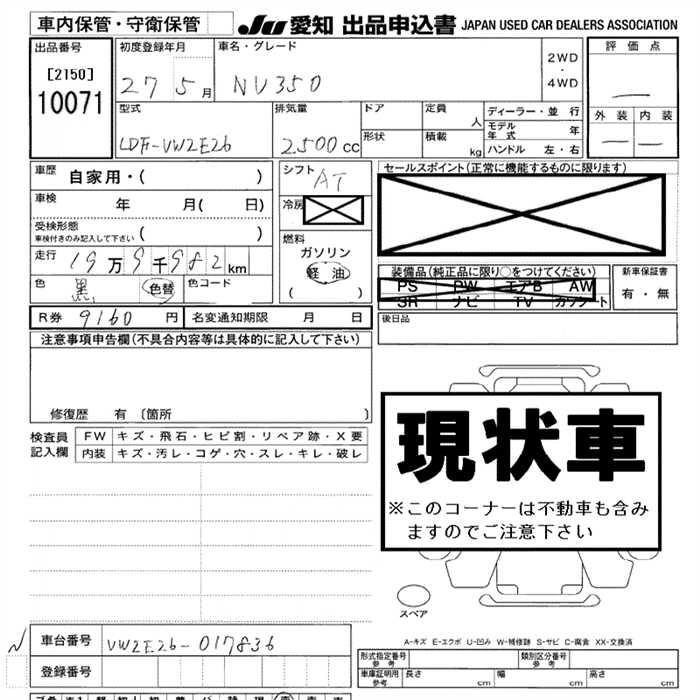 車内保管・守衛保管
JU 愛知 出品申込書 JAPAN USED CAR DEALERS ASSOCIATION
出品番号
[2150]
10071
初度登録年月
27 5月
車名・グレード
NV350
2WD
・
4WD
評価点
—
外装 内装
— —
型式
LDF-VW2E26
排気量
2.500cc
ドア
形状
定員 人
積載 kg
ディーラー・並行
モデル年式 年
ハンドル 左・右
車歴 自家用・( )
車検 年 月( 日)
受検形態
車検付きのみ記入して下さい ( )
走行 19万9千982km
色 黒 色替 色コード
シフト AT
冷房
燃料
ガソリン
軽油
( )
セールスポイント(正常に機能するものに限ります)
装備品(純正品に限り○をつけてください)
PS PW エアB AW
SR ナビ TV カセット
新車保証書
有・無
R券 9160円 名変通知期限 月 日
後日品
注意事項申告欄(不具合内容等は具体的に記入して下さい)
修復歴 有〔箇所 〕
検査員
記入欄
FW キズ・飛石・ヒビ割・リペア跡・X要
内装 キズ・汚レ・コゲ・穴・スレ・キレ・破レ
現状車
※このコーナーは不動車も含み
ますのでご注意下さい
スペア
A-キズ E-エクボ U-凹み W-補修跡 S-サビ C-腐食 XX-交換済
N
車台番号 VW2E26-017836
登録番号
形式指定番号
参考
類別区分番号
参考
車庫証明用
参考
長さ cm 幅 cm 高さ cm